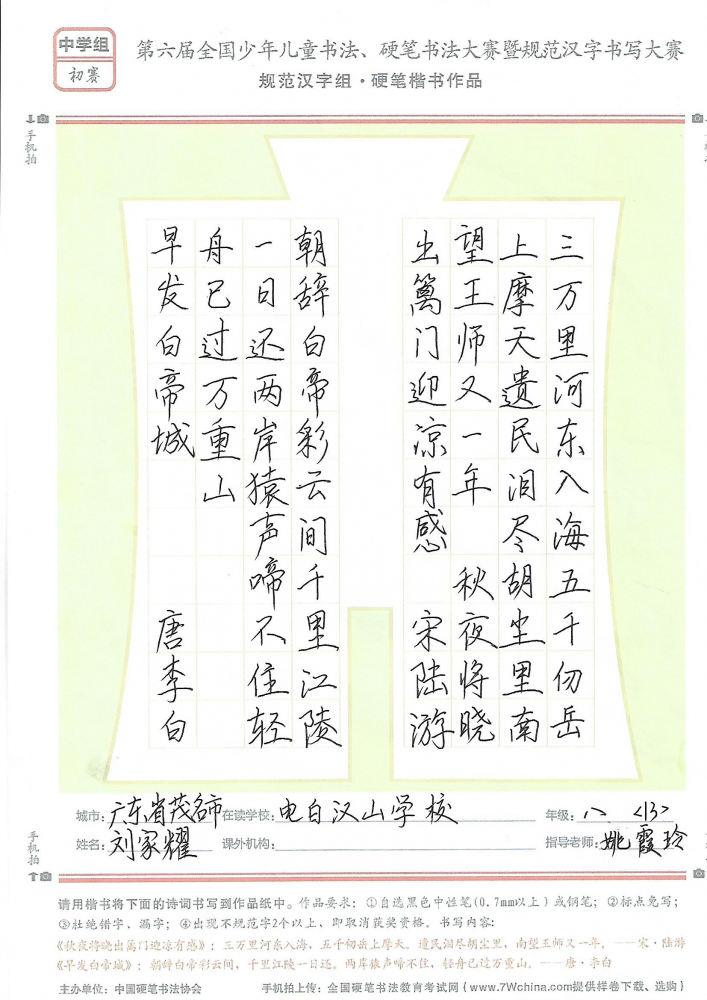 中学组
初赛
第六届全国少年儿童书法、硬笔书法大赛暨规范汉字书写大赛
规范汉字组·硬笔楷书作品
手机拍
三万里河东入海五千仞岳
上摩天遗民泪尽胡尘里南
望王师又一年 秋夜将晓
出篱门迎凉有感 宋陆游
朝辞白帝彩云间千里江陵
一日还两岸猿声啼不住轻
舟已过万重山
早发白帝城 唐李白
城市:广东省茂名市 在读学校:电白汉山学校 年级:八〈13〉
姓名:刘家耀 课外机构: 指导老师:姚霞玲
手机拍
请用楷书将下面的诗词书写到作品纸中。作品要求:①自选黑色中性笔(0.7mm以上)或钢笔;②标点免写;
③杜绝错字、漏字;④出现不规范字2个以上,即取消获奖资格。书写内容:
《秋夜将晓出篱门迎凉有感》:三万里河东入海,五千仞岳上摩天。遗民泪尽胡尘里,南望王师又一年。——宋·陆游
《早发白帝城》:朝辞白帝彩云间,千里江陵一日还。两岸猿声啼不住,轻舟已过万重山。——唐·李白
主办单位:中国硬笔书法协会 手机拍上传:全国硬笔书法教育考试网{www.7Wchina.com提供样卷下载、选购}